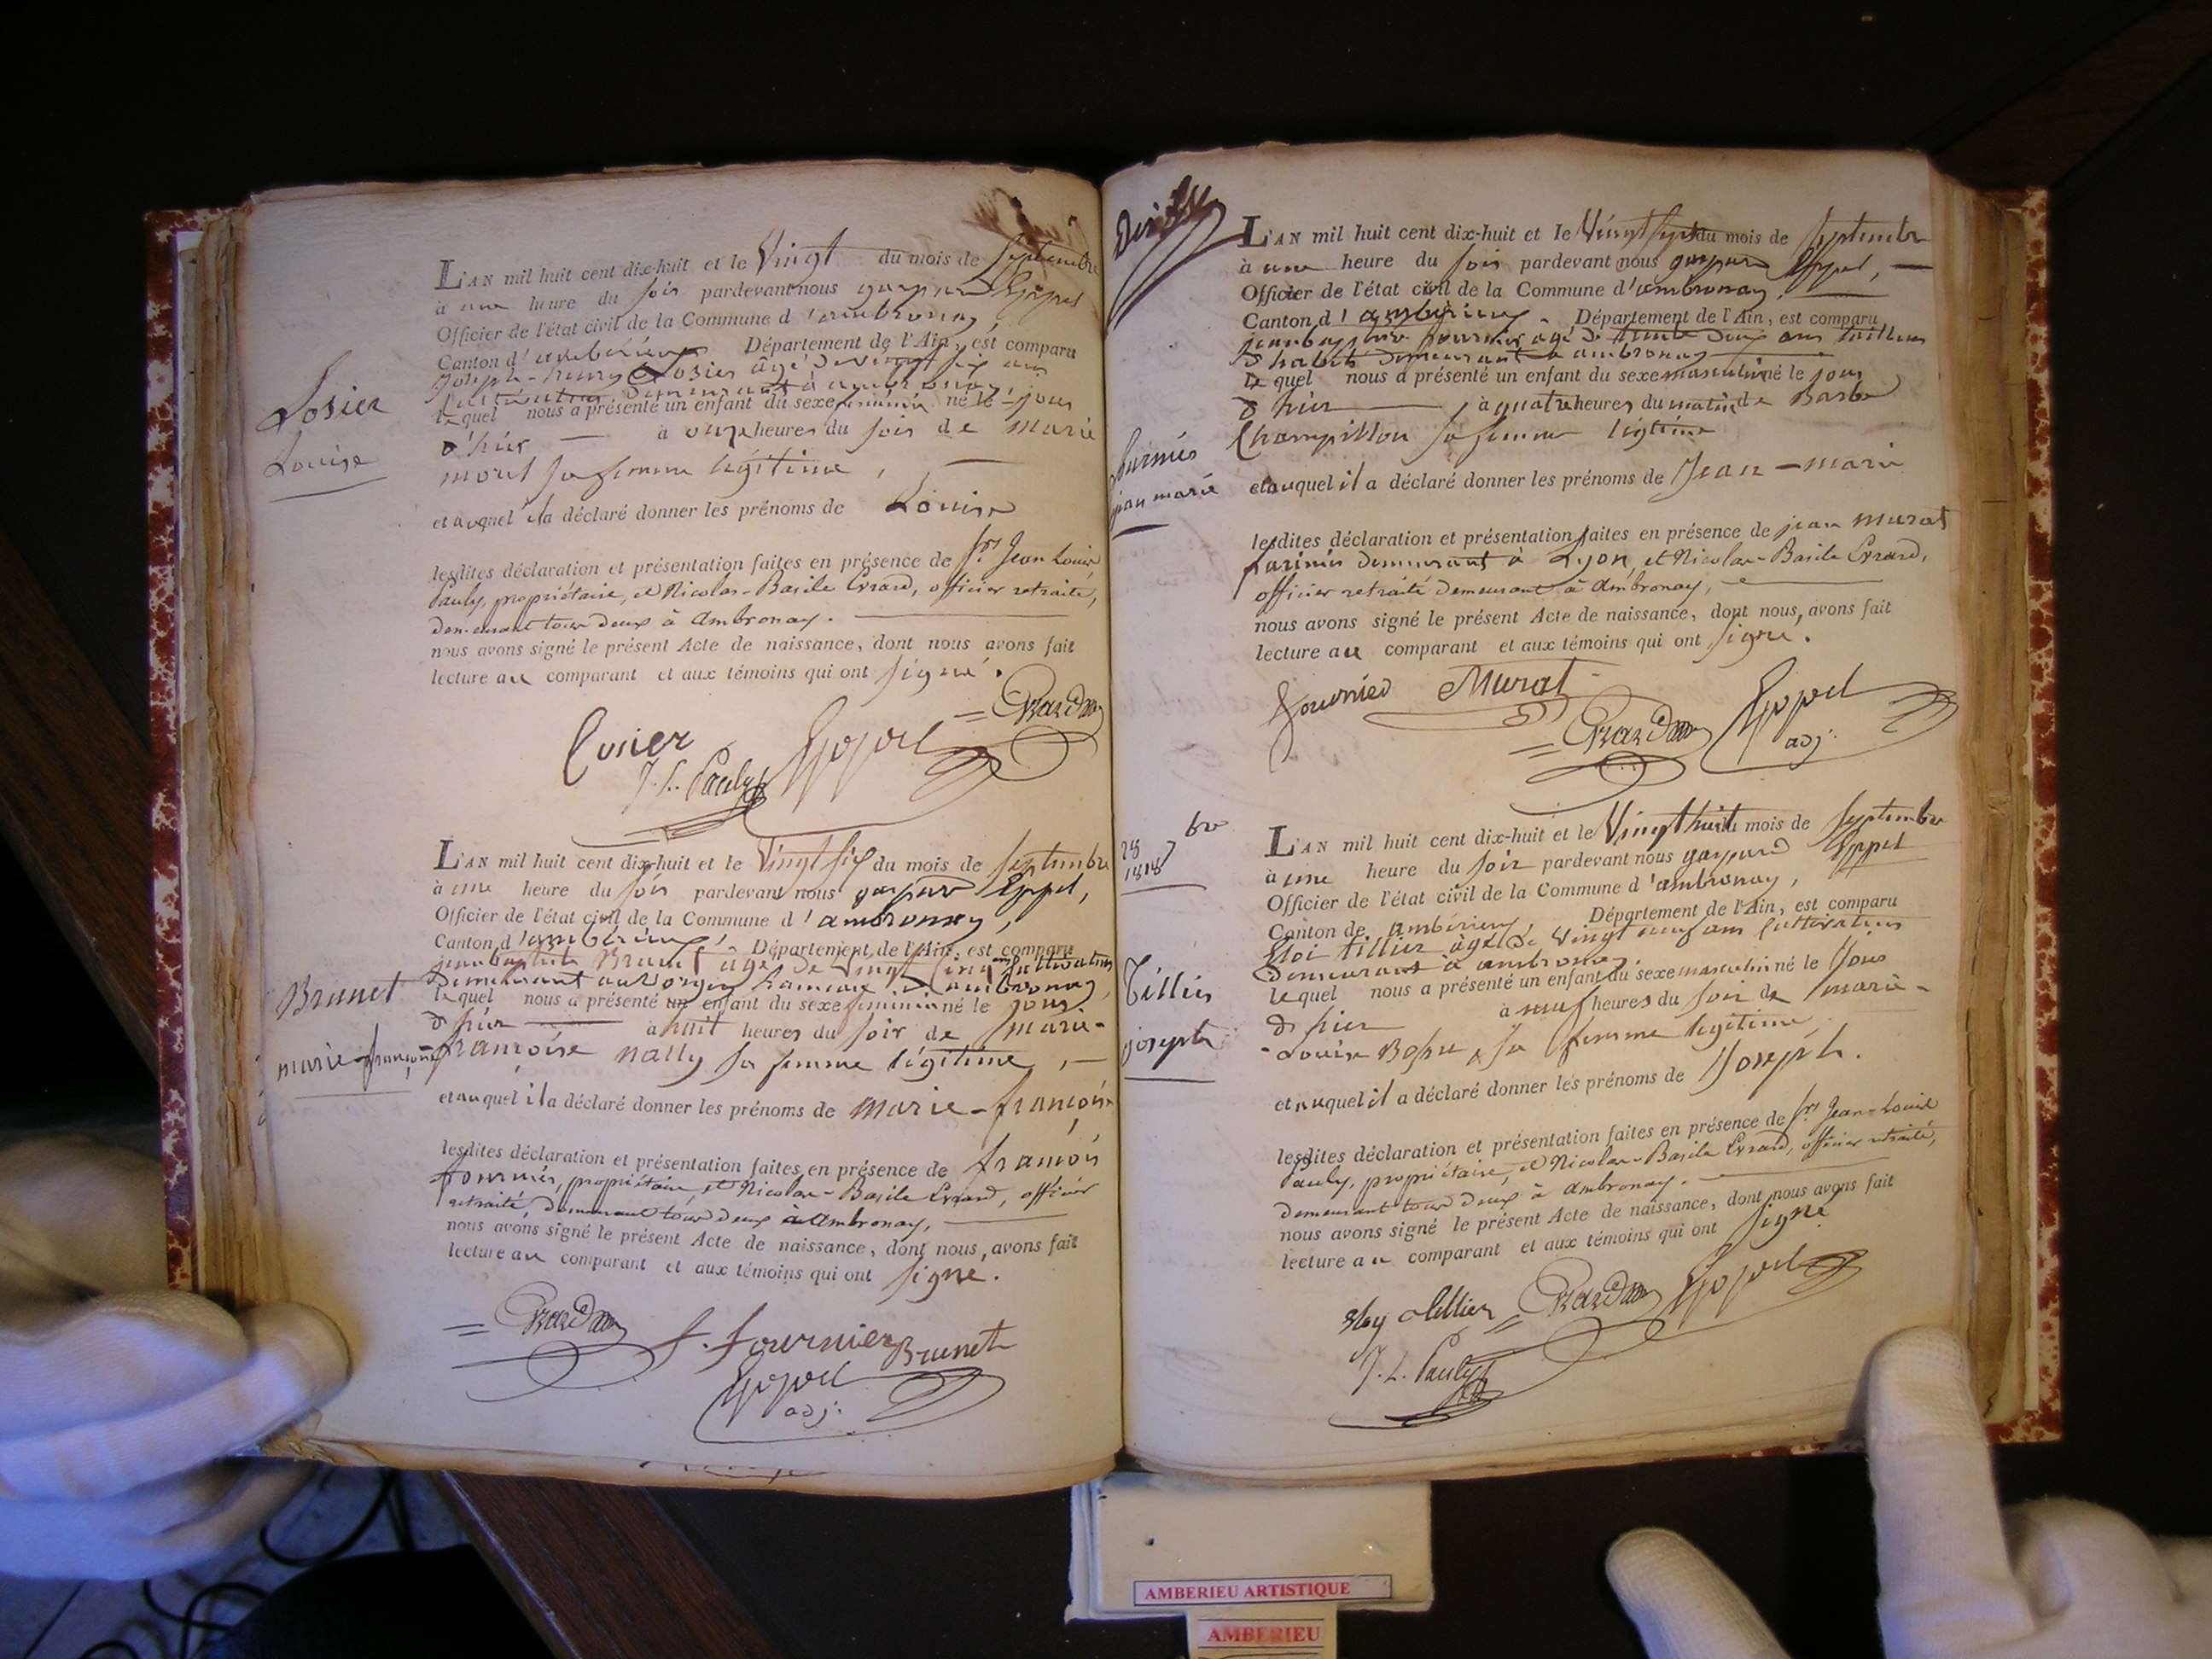 L'AN mil huit cent dix-huit et le Vingt du mois de Septembre
à une heure du soir pardevant nous gaspard Eppel
Officier de l'état civil de la Commune d'ambronay,
Canton d'ambérieux Département de l'Ain, est comparu
Joseph-henry Losier âgé de vingt six ans
demeurant à ambronay,
lequel nous a présenté un enfant du sexe féminin né le jour
d'hier à onze heures du soir de marie
morel sa femme légitime,
et auquel il a déclaré donner les prénoms de Louise
lesdites déclaration et présentation faites en présence de srs Jean Louis
Pauly, propriétaire, et Nicolas-Basile Evrard, officier retraité,
demeurant tous deux à Ambronay.
nous avons signé le présent Acte de naissance, dont nous avons fait
lecture au comparant et aux témoins qui ont signé.
Losier
Louise
Losier
Evrard
J. L. Pauly
Eppel
L'AN mil huit cent dix-huit et le Vingt six du mois de septembre
à une heure du soir pardevant nous gaspar Eppel,
Officier de l'état civil de la Commune d'ambronay,
Canton d'ambérieux, Département de l'Ain, est comparu
jean baptiste Brunet âgé de vingt cinq ans cultivateur
demeurant au hameau d'ambronay,
lequel nous a présenté un enfant du sexe féminin né le jour
d'hier à huit heures du soir de marie-
françoise nally sa femme légitime,
et auquel il a déclaré donner les prénoms de marie-françoise
lesdites déclaration et présentation faites en présence de françois
fournier, propriétaire, et Nicolas-Basile Evrard, officier
retraité, demeurant tous deux à Ambronay,
nous avons signé le présent Acte de naissance, dont nous avons fait
lecture au comparant et aux témoins qui ont signé.
Brunet
marie-françoise
Evrard
f. fournier
Brunet
Eppel
adj.
L'AN mil huit cent dix-huit et le Vingt sept du mois de Septembre
à une heure du soir pardevant nous gaspard Eppel,
Officier de l'état civil de la Commune d'ambronay,
Canton d'ambérieux. Département de l'Ain, est comparu
jean baptiste fournier âgé de trente deux ans tailleur
d'habits demeurant à ambronay
lequel nous a présenté un enfant du sexe masculin né le jour
d'hier, à quatre heures du matin de Barbe
Champillon sa femme légitime
et auquel il a déclaré donner les prénoms de Jean-marie
lesdites déclaration et présentation faites en présence de jean murat
demeurant à Lyon, et Nicolas-Basile Evrard,
officier retraité demeurant à Ambronay,
nous avons signé le présent Acte de naissance, dont nous avons fait
lecture au comparant et aux témoins qui ont signé.
fournier
jean marie
fournier
Murat
Evrard
Eppel
adj.
28 7bre
1818
L'AN mil huit cent dix-huit et le Vingt huit du mois de septembre
à une heure du soir pardevant nous gaspard Eppel
Officier de l'état civil de la Commune d'ambronay,
Canton de ambérieux, Département de l'Ain, est comparu
Eloi tillier âgé de vingt neuf ans cultivateur
demeurant à ambronay.
lequel nous a présenté un enfant du sexe masculin né le jour
d'hier à neuf heures du soir de marie-
Louise sa femme légitime,
et auquel il a déclaré donner les prénoms de Joseph.
lesdites déclaration et présentation faites en présence de srs Jean-Louis
Pauly, propriétaire, et Nicolas-Basile Evrard, officier retraité,
demeurant tous deux à Ambronay.
nous avons signé le présent Acte de naissance, dont nous avons fait
lecture au comparant et aux témoins qui ont signé
Tillier
joseph
Eloy tillier
Evrard
Eppel
J. L. Pauly
AMBERIEU ARTISTIQUE
AMBERIEU